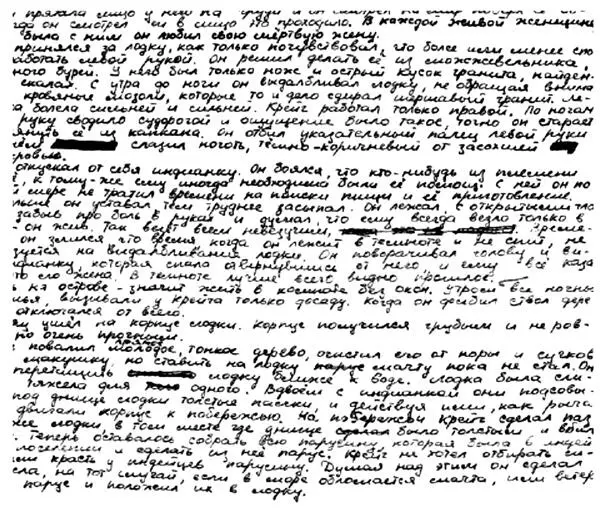 прятала лицо у него на груди и он смотрел
да он смотрел ей в лицо это проходило. В каждой живой женщине
было с ним он любил свою мёртвую жену.
принялся за лодку, как только почувствовал, что более или менее
работать левой рукой. Он решил делать её из можжевельника,
ного бурей. У него был только нож и острый кусок гранита, найден-
скалах. С утра до ночи он выдалбливал лодку, не обращая внима
кровяные мозоли, которые то и дело сдирал шершавый гранит. Ле-
ка болела сильней и сильней. Крейг работал только правой. По ночам
руку сводило судорогой и ощущение было такое, точно он старает
януть её из капкана. Он отбил указательный палец левой руки
слазил ноготь, тёмно-коричневый от засохшей
ровью.
отпускал от себя индианку. Он боялся, что кто-нибудь из племени
к тому-же ему иногда необходима была её помощь. С ней он по
мере не тратил времени на поиски пищи и её приготовление.
он уставал тем труднее засыпал. Он лежал с открытыми гла
забыв про боль в руках и думал, что ему всегда везло только в
он жив. Так везёт всем невезучим,
он злился, что время когда он лежит в темноте и не спит, не
зуется на выдалбливание лодки. Он поворачивал голову и ви-
дианку, которая спала отвернувшись от него и ему всё каза
то его жена. В темноте лучше всего видно прошлое.
на острове - значит жить в комнате без окон. Утром все ночны
вызывали у Крейга только досаду. Когда он долбил ствол дере
отключался от всего.
ушёл на корпус лодки. Корпус получился грубым и неров-
но очень прочным.
повалил прямое молодое, тонкое дерево, очистил его от коры и сучков
но ставить на лодку парус мачту пока не стал. Он
перетащить лодку ближе к воде. Лодка была сли-
тяжела для одного. Вдвоём с индианкой они подсовы-
под днище лодки толстые палки и действуя ими, как рыча
двигали корпус к побережью. На побережьи Крейг сделал паз
же лодки в том месте где днище было толстым и
Теперь оставалось собрать всю парусину, которая была в индей
и сделать из неё парус. Крейг не хотел отбирать си-
красть у индейцев парусину. Думая над этим он сделал
сла, на тот случай, если в море обломается мачта, или ветер
парус и положил их в лодку.